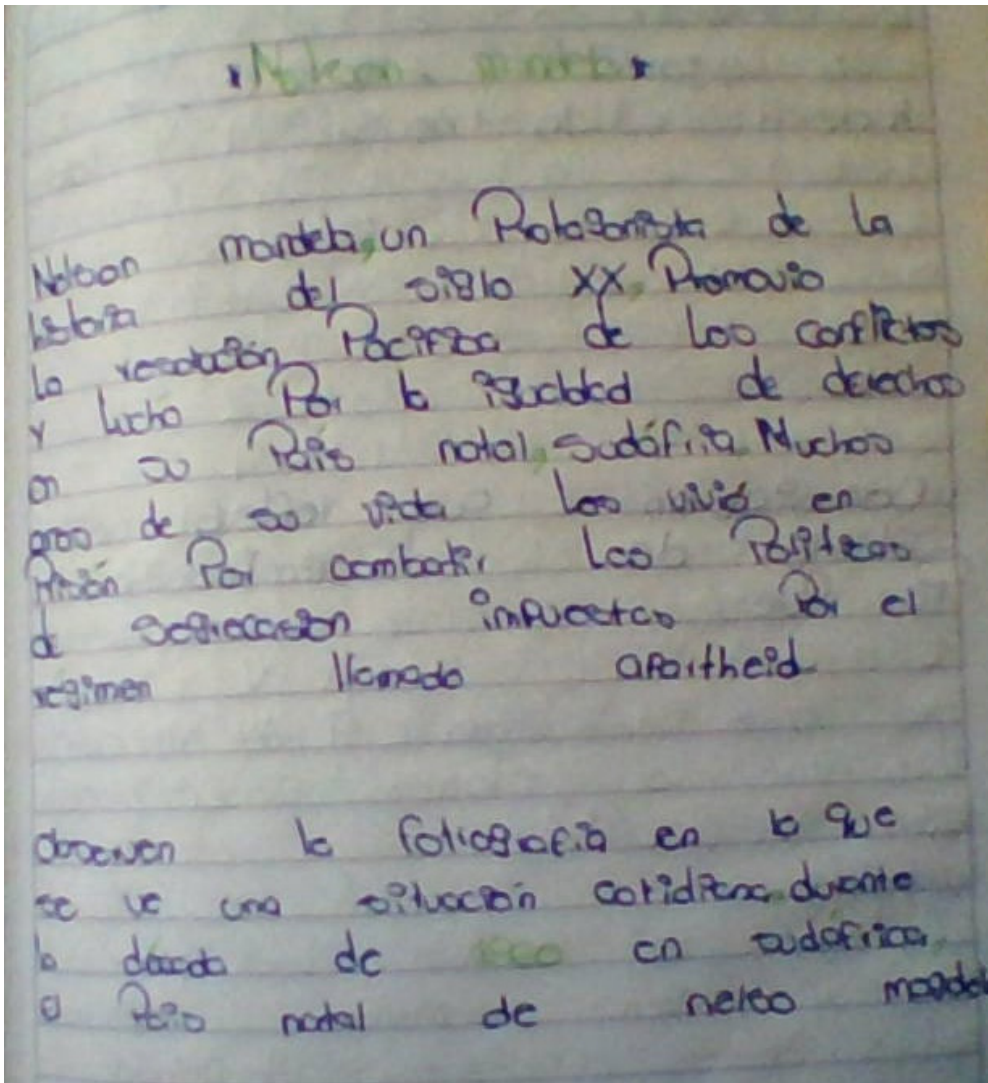 Nelson mandela
Nelson mandela, un Protagonista de la
historia del siglo XX, Promovio
la resolución Pacifica de los conflictos
y lucho Por la igualdad de derechos
en su País natal, Sudáfrica. Muchos
años de su vida los vivió en
Prisión Por combatir las Politicas
de segregación impuestas Por el
regimen llamado apartheid
observen la fotografia en la que
se ve una situación cotidiana durante
la década de en sudafrica,
el País natal de nelso mandela